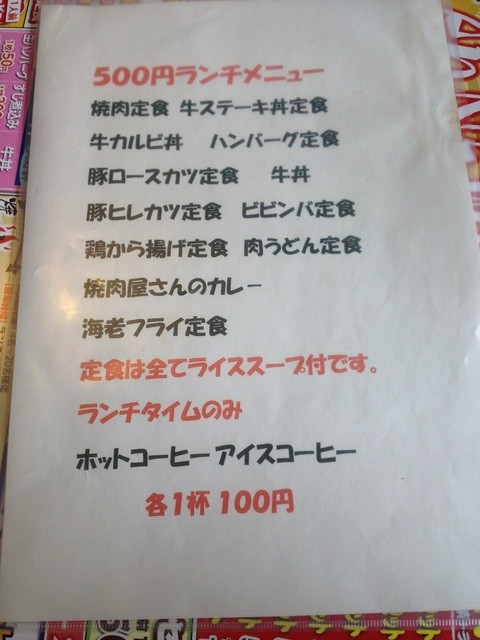 500円ランチメニュー
焼肉定食 牛ステーキ丼定食
牛カルビ丼 ハンバーグ定食
豚ロースカツ定食 牛丼
豚ヒレカツ定食 ビビンバ定食
鶏から揚げ定食 肉うどん定食
焼肉屋さんのカレー
海老フライ定食
定食は全てライススープ付です。
ランチタイムのみ
ホットコーヒー アイスコーヒー
各1杯 100円